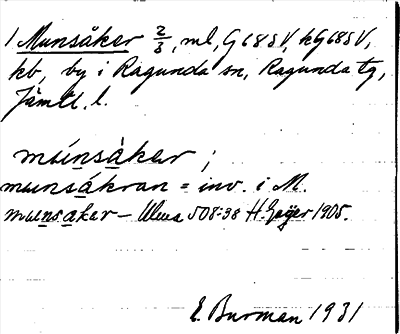 1 Munsåker 2/3, ml, G 68 S V, kG 68 S V,
kb, by i Ragunda sn, Ragunda tg,
Jämtl. l.
múnsàker;
munsákran = inv. i M.
munsaker – Ulma 508:38 H. Geijer 1905.
E. Burman 1931